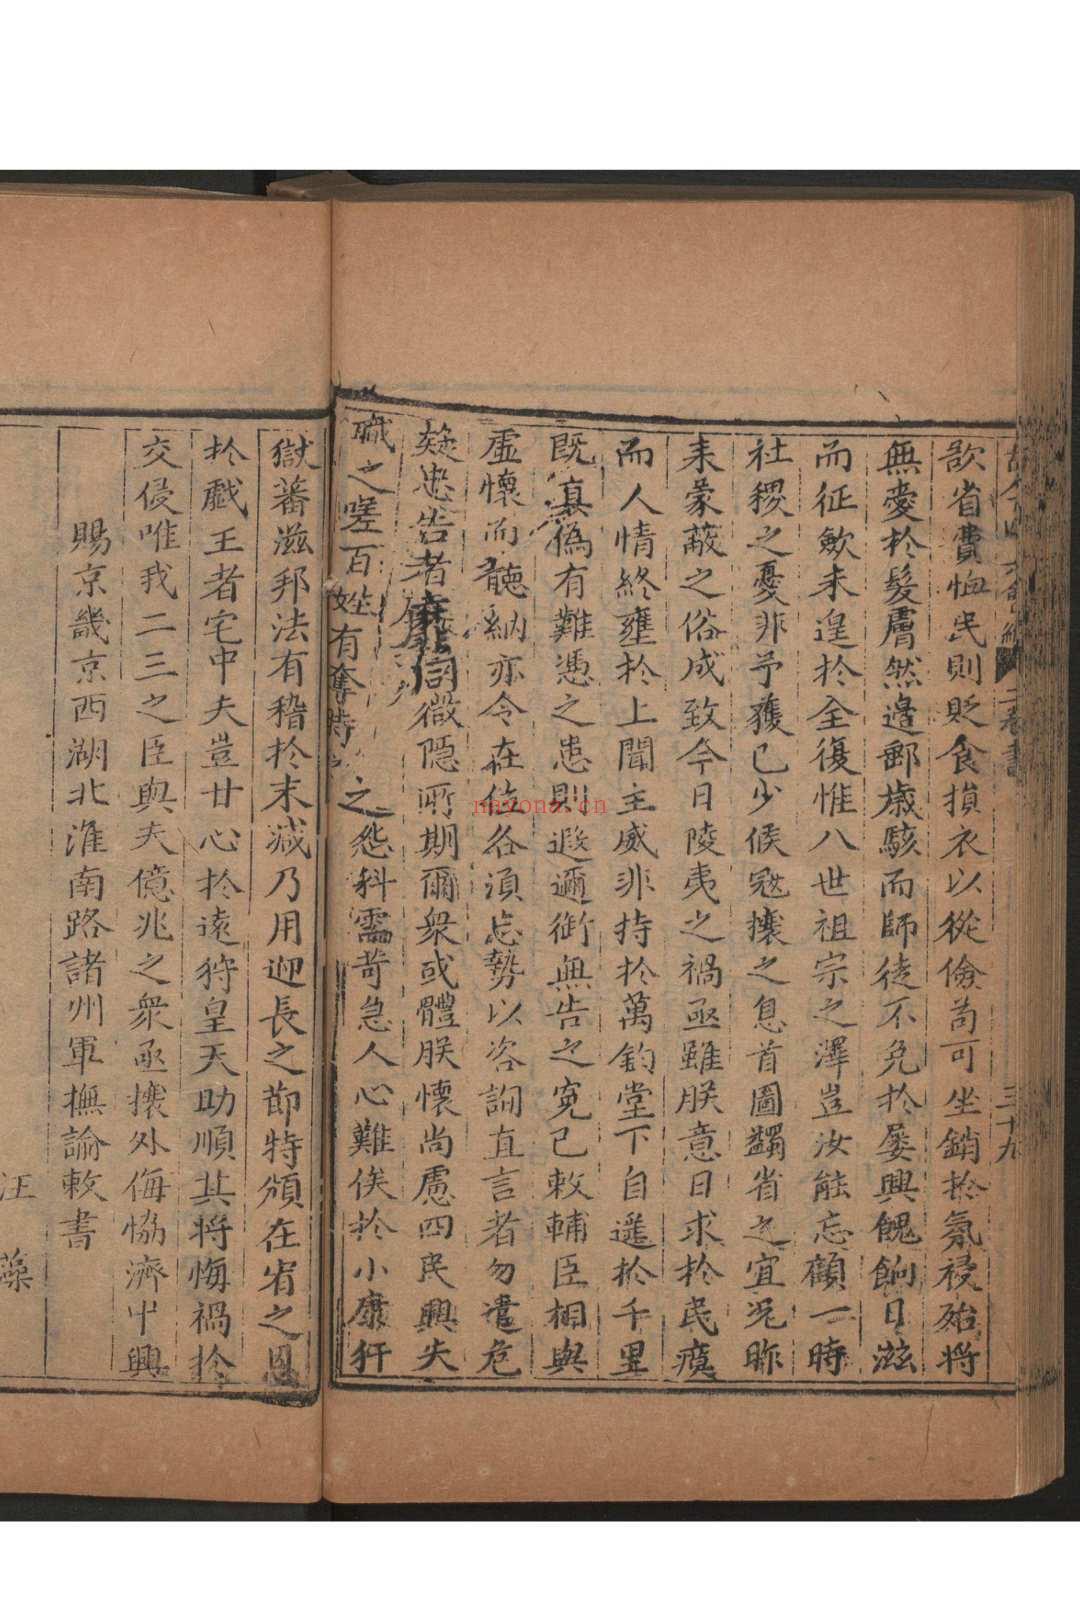 歆省費恤民則貶食損衣以從儉苟可坐銷扵氛祲殆將
無愛扵髮膚然邉鄙歳駭而師徒不免扵屡興餽餉日滋
而征歛未遑扵全復惟八世祖宗之澤豈汝能忘顧一時
社稷之憂非予獲已少候冦攘之息首圖蠲省之宜况昨
来蒙蔽之俗成致今日陵夷之禍亟雖朕意日求扵民瘼
而人情終壅扵上聞主威非持扵萬鈞堂下自遥扵千里
既真偽有難憑之患則遐邇銜無告之寃已敕輔臣相與
虛懷而聽納亦令在位各湏忘勢以咨詢直言者勿遣危
疑忠告者靡伺微隱所期爾衆或體朕懷尚慮四民興失
職之嗟百姓有奪時之怨科需苛急人心難俟扵小康犴
獄蕃滋邦法有稽扵末减乃用迎長之節特頒在宥之恩
扵戱王者宅中夫豈甘心扵逺狩皇天助順其将悔禍扵
交侵唯我二三之臣與夫億兆之衆亟攘外侮恊濟中興
賜京畿京西湖北淮南路諸州軍撫諭敕書
汪藻
三十九
nayona.cn